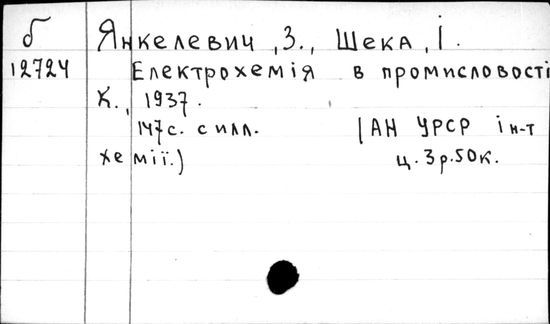 б Янкелевич, З., Шека, І.
12724 Електрохемія в промисловості
К., 1937.
147с. с илл. (АН УРСР ін-т
хемії.) ц. 3р.50к.